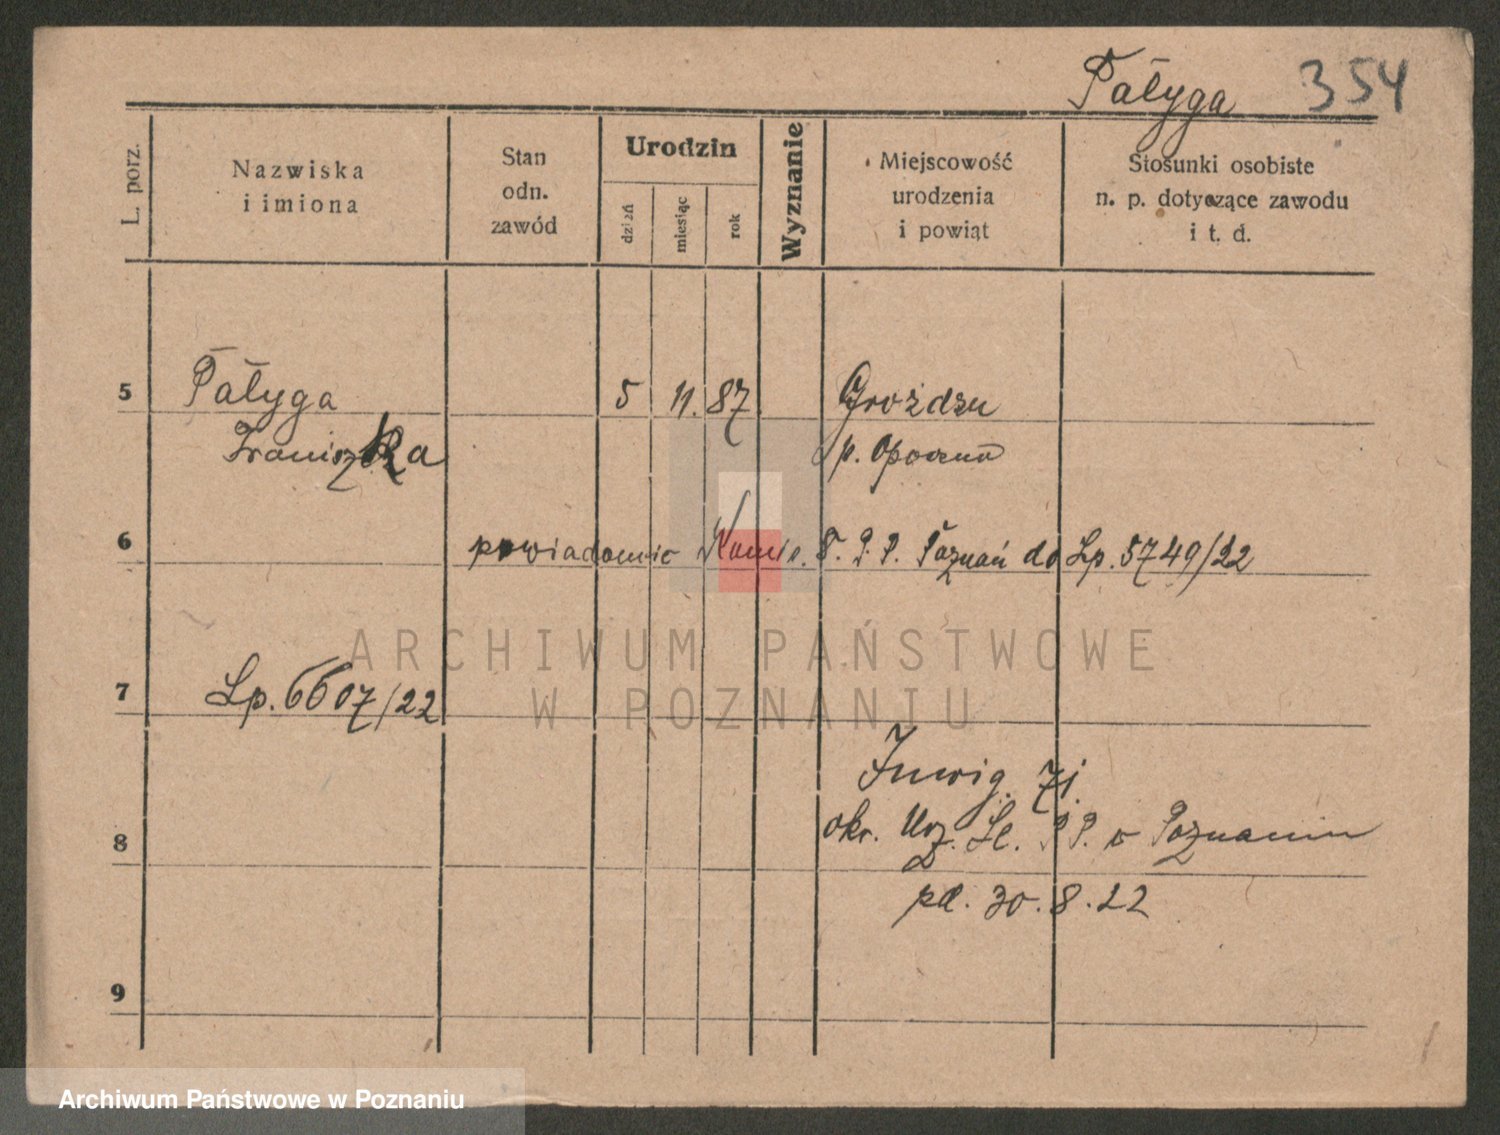 Pałyga 354
L. porz.
Nazwiska
i imiona
Stan
odn.
zawód
Urodzin
dzień
miesiąc
rok
Wyznanie
Miejscowość
urodzenia
i powiąt
Stosunki osobiste
n. p. dotyczące zawodu
i t. d.
5 Pałyga 5 11. 87
Franiszka p. Opoczno
6 powiadomić Komis. P. P. Poznań do Lp. 5749/22
ARCHIWUM PAŃSTWOWE
W POZNANIU
7 Lp. 6607/22
Inwig.
8 okr. Urz. Śl. P.P. w Poznaniu
pd. 30.8.22
9
Archiwum Państwowe w Poznaniu